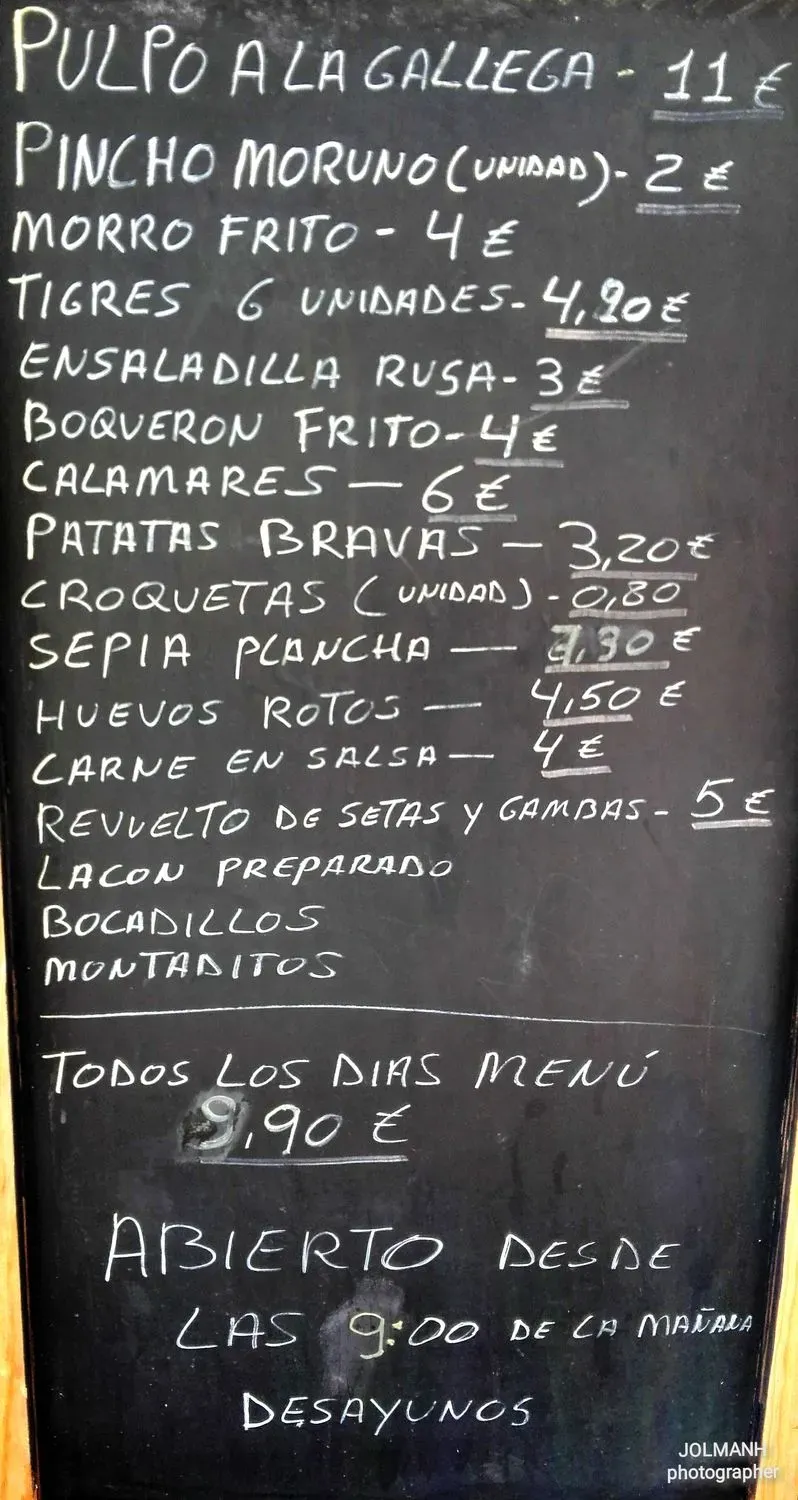 PULPO A LA GALLEGA - 11 €
PINCHO MORUNO (UNIDAD) - 2 €
MORRO FRITO - 4 €
TIGRES 6 UNIDADES - 4,20 €
ENSALADILLA RUSA - 3 €
BOQUERON FRITO - 4 €
CALAMARES — 6 €
PATATAS BRAVAS — 3,20 €
CROQUETAS (UNIDAD) - 0,80
SEPIA PLANCHA — €
HUEVOS ROTOS — 4,50 €
CARNE EN SALSA — 4 €
REVUELTO DE SETAS Y GAMBAS - 5 €
LACON PREPARADO
BOCADILLOS
MONTADITOS
TODOS LOS DIAS MENÚ
9,90 €
ABIERTO DESDE
LAS 9:00 DE LA MAÑANA
DESAYUNOS
JOLMANH
photographer